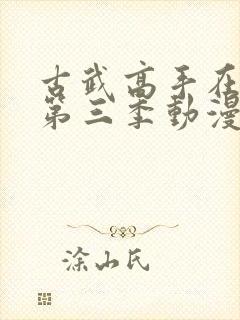 古武高手在
第三季動漫
涂山氏